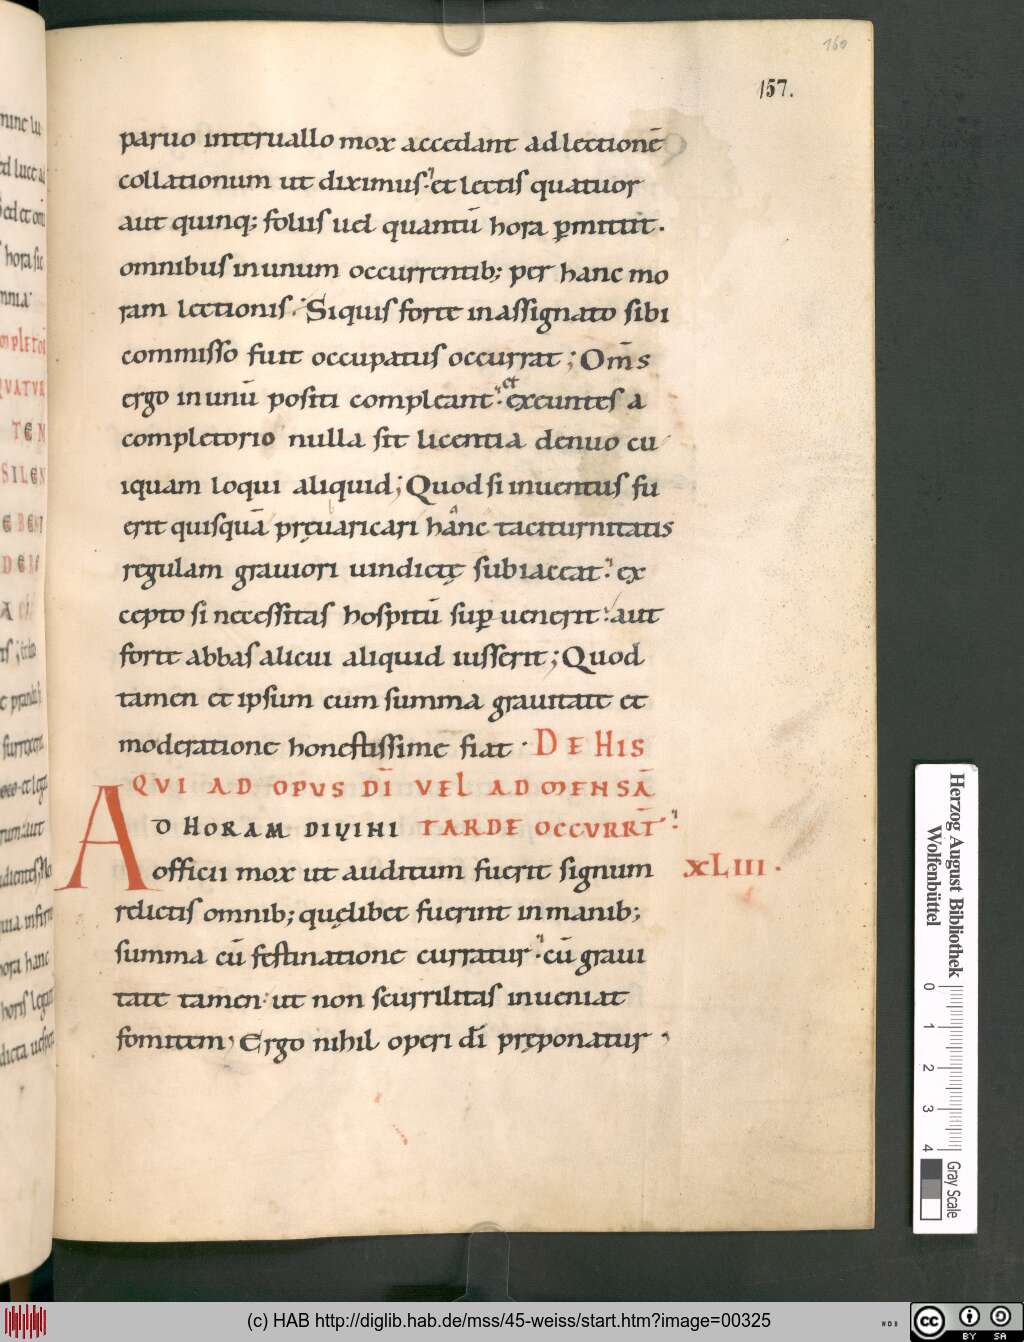 160
157.
paruo interuallo mox accedant ad lectionē
collationum ut diximus· et lectis quatuor
aut quinq; foliis uel quantū hora ꝑmittit.
omnibus in unum occurrentib; per hanc mo
ram lectionis. Siquis forte in assignato sibi
commisso fuit occupatus occurrat; Om̄s
ergo in unū positi compleant· et exeuntes a
completorio nulla sit licentia denuo cu
iquam loqui aliquid; Quod si inuentus fu
erit quisquā pręuaricari hanc taciturnitatis
regulam grauiori uindictę subiaceat· ex
cepto si necessitas hospitū suꝑuenerit· aut
forte abbas alicui aliquid iusserit; Quod
tamen et ipsum cum summa grauitate et
moderatione honestissime fiat · DE HIS
QVI AD OPVS DI VEL AD MENSĀ
AD HORAM DIVINI TARDE OCCVRRT̄
officii mox ut auditum fuerit signum XLIII.
relictis omnib; quęlibet fuerint in manib;
summa cū festinatione curratur· cū graui
tate tamen· ut non scurrilitas inueniat
fomitem, Ergo nihil operi dī pręponatur,
Herzog August Bibliothek
Wolfenbüttel
0 1 2 3 4
Gray Scale
(c) HAB http://diglib.hab.de/mss/45-weiss/start.htm?image=00325
cc BY SA